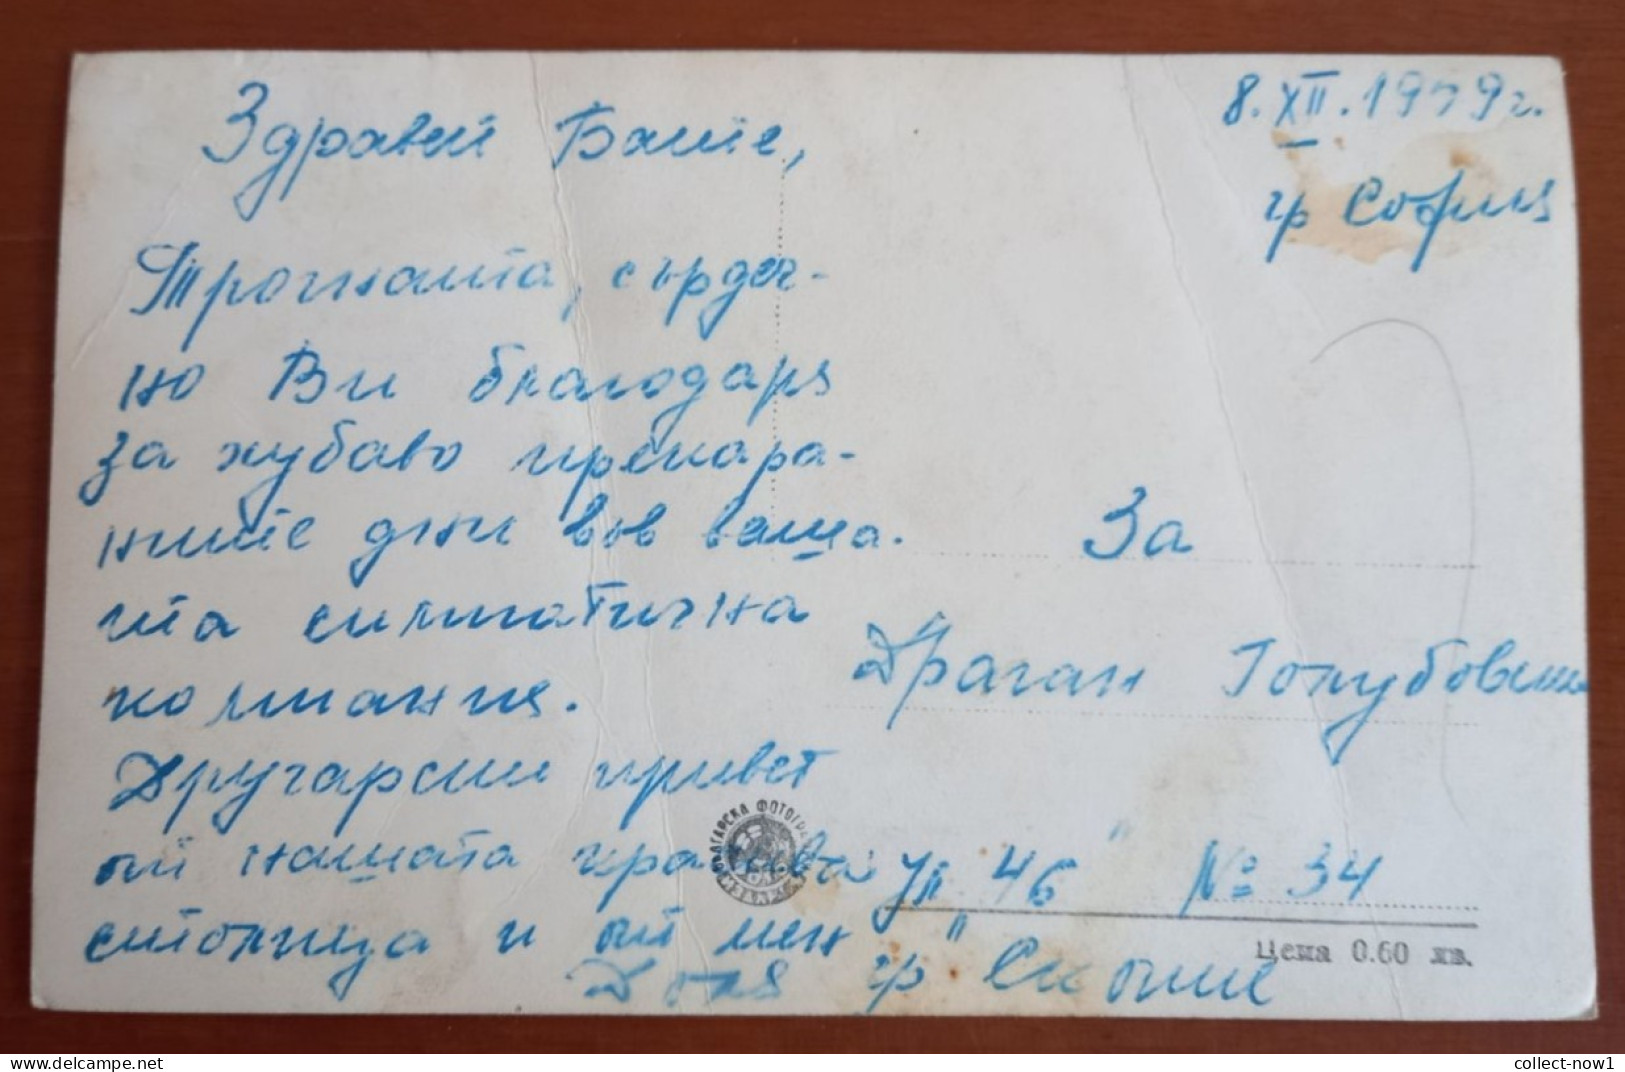 Здравей Бате,
8. XII. 1959 г.
гр София
Трогната, сърдеч-
но Ви благодаря
за хубаво прекара-
ните дни във ваша-
та симпатична
компания.
Другарски привет
от нашата красива
столица и от мен
За
Драган Голубовски
ул "46" № 34
гр "Скопие
БЪЛГАРСКА ФОТОГРАФИЯ
Цена 0.60 лв.
collect-now1